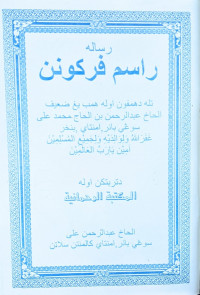 رساله
راسم فركونن
تله دهمفون اوله همب يغ ضعيف
الحاج عبدالرحمن بن الحاج محمد على
سوغى بانر امنتاي بنجر
غفر الله له ولوالديه ولجميع المسلمين
آمين يارب العالمين
دتربتكن اوله
المكتبة الرحمانية
الحاج عبدالرحمن على
سوغى بانر امنتاي كالمنتن سلاتن